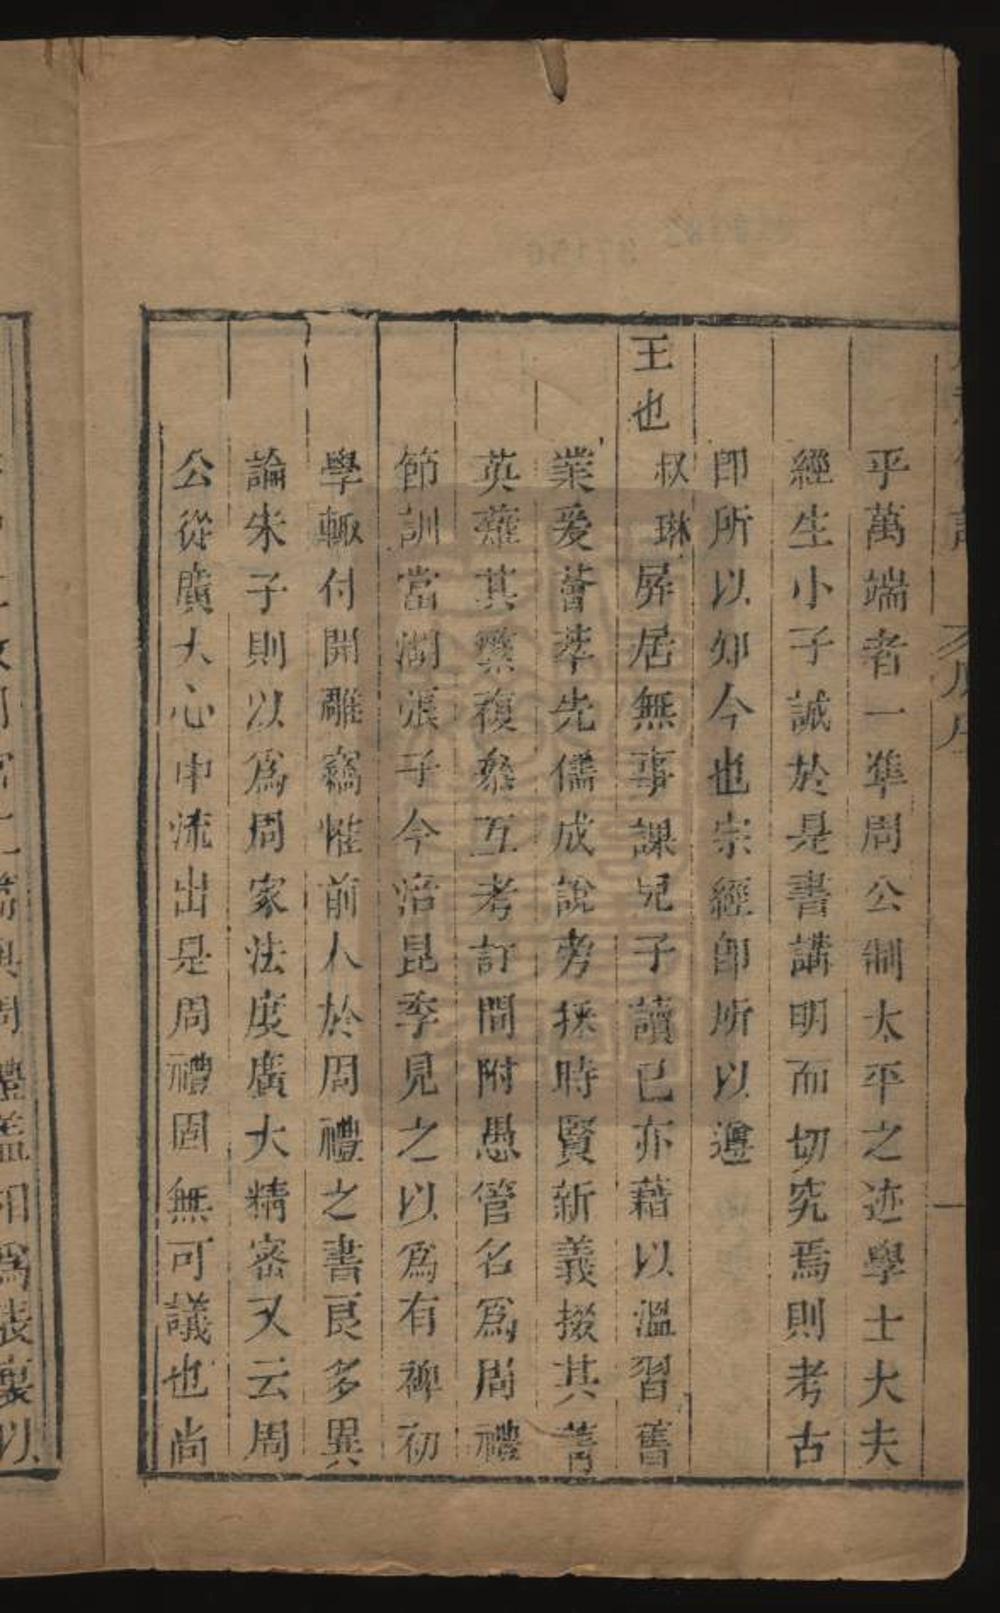 平萬端者一準周公制太平之迹學士大夫
經生小子誠於是書講明而切究焉則考古
即所以知今也宗經即所以遵
王也
叔琳屏居無事課兒子讀已亦藉以溫習舊
業爰薈萃先儒成說旁採時賢新義掇其菁
英薙其繁複叅互考訂間附愚管名爲周禮
節訓當湖張子今涪昆季見之以爲有裨初
學輒付開雕竊惟前人於周禮之書良多異
論朱子則以爲周家法度廣大精密又云周
公從廣大心中流出是周禮固無可議也尚
相爲表裏以